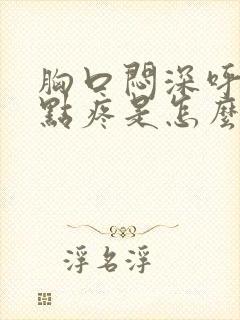 胸口悶深呼
點疼是怎麼
浮名浮